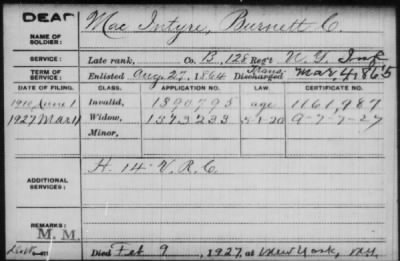 DEAD
NAME OF SOLDIER: Mac Intyre, Burnett C.
SERVICE: Late rank, Co. B, 128 Reg't N.Y. Inf
TERM OF SERVICE: Enlisted Aug. 27, 1864 Discharged Trans. Mar, 4, 1865
DATE OF FILING. CLASS. APPLICATION NO. LAW. CERTIFICATE NO.
1910 June 1 Invalid, 1390795 age 1161,987
1927 Mar 11 Widow, 1573233 5-1-20 9-7-7-27
Minor,
ADDITIONAL SERVICES: H. 14 V.R.C.
REMARKS: M. M.
Died Feb 9, 1927, at New York, N.Y.